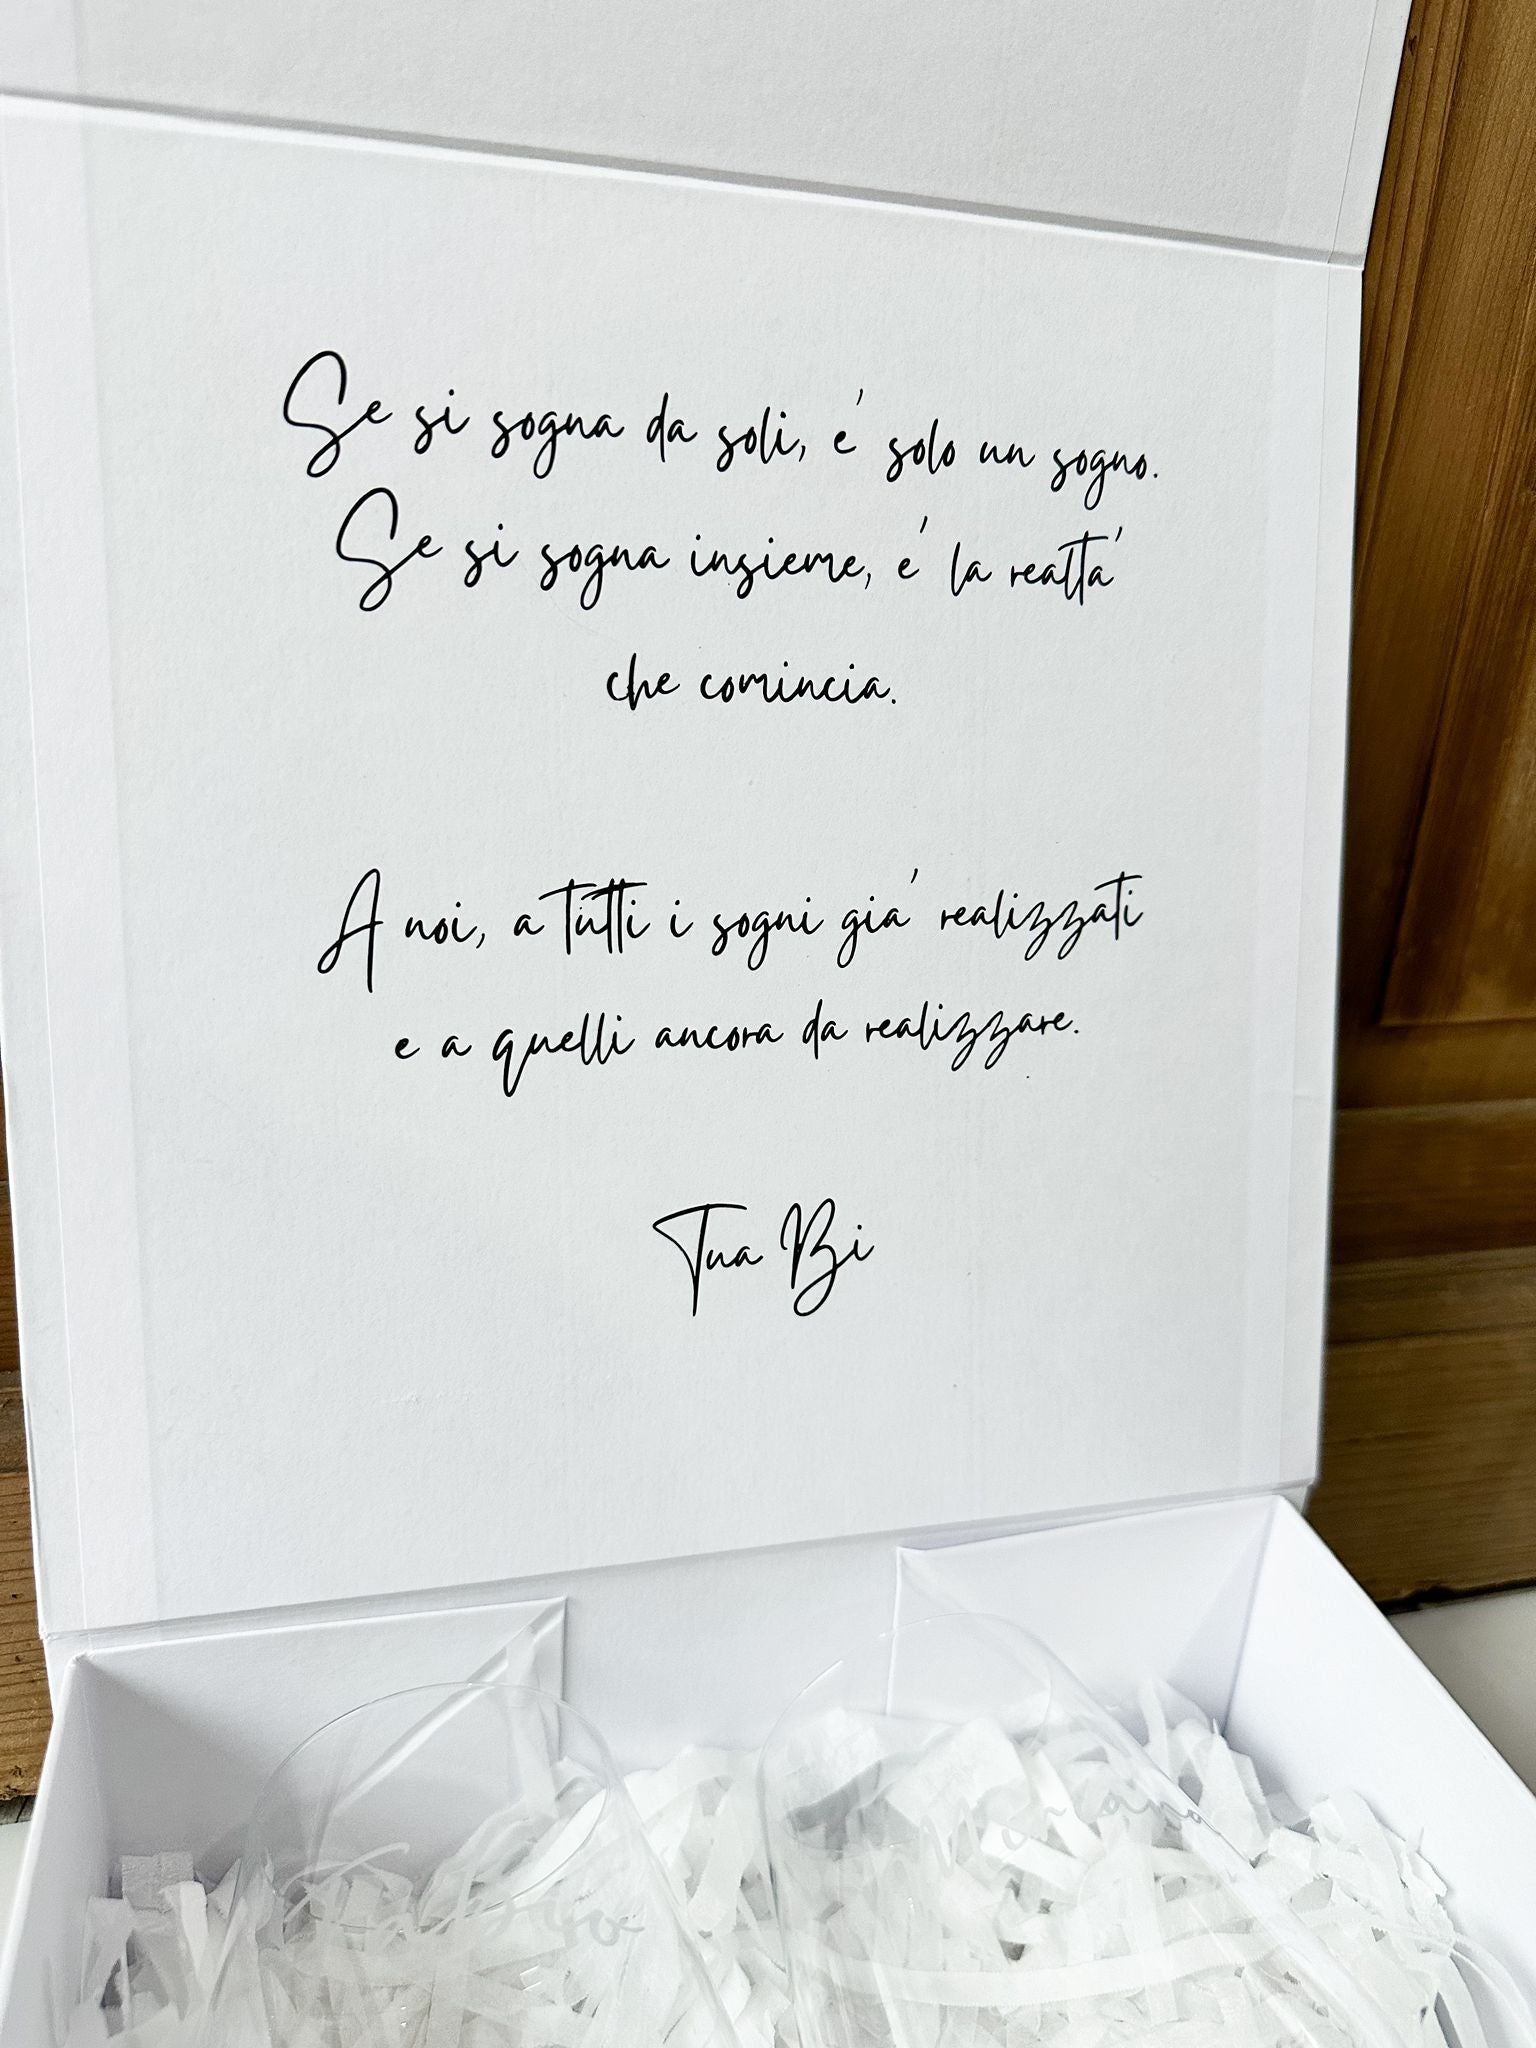 Se si sogna da soli, e' solo un sogno.
Se si sogna insieme, e' la realta'
che comincia.
A noi, a tutti i sogni gia' realizzati
e a quelli ancora da realizzare.
Tua Bi